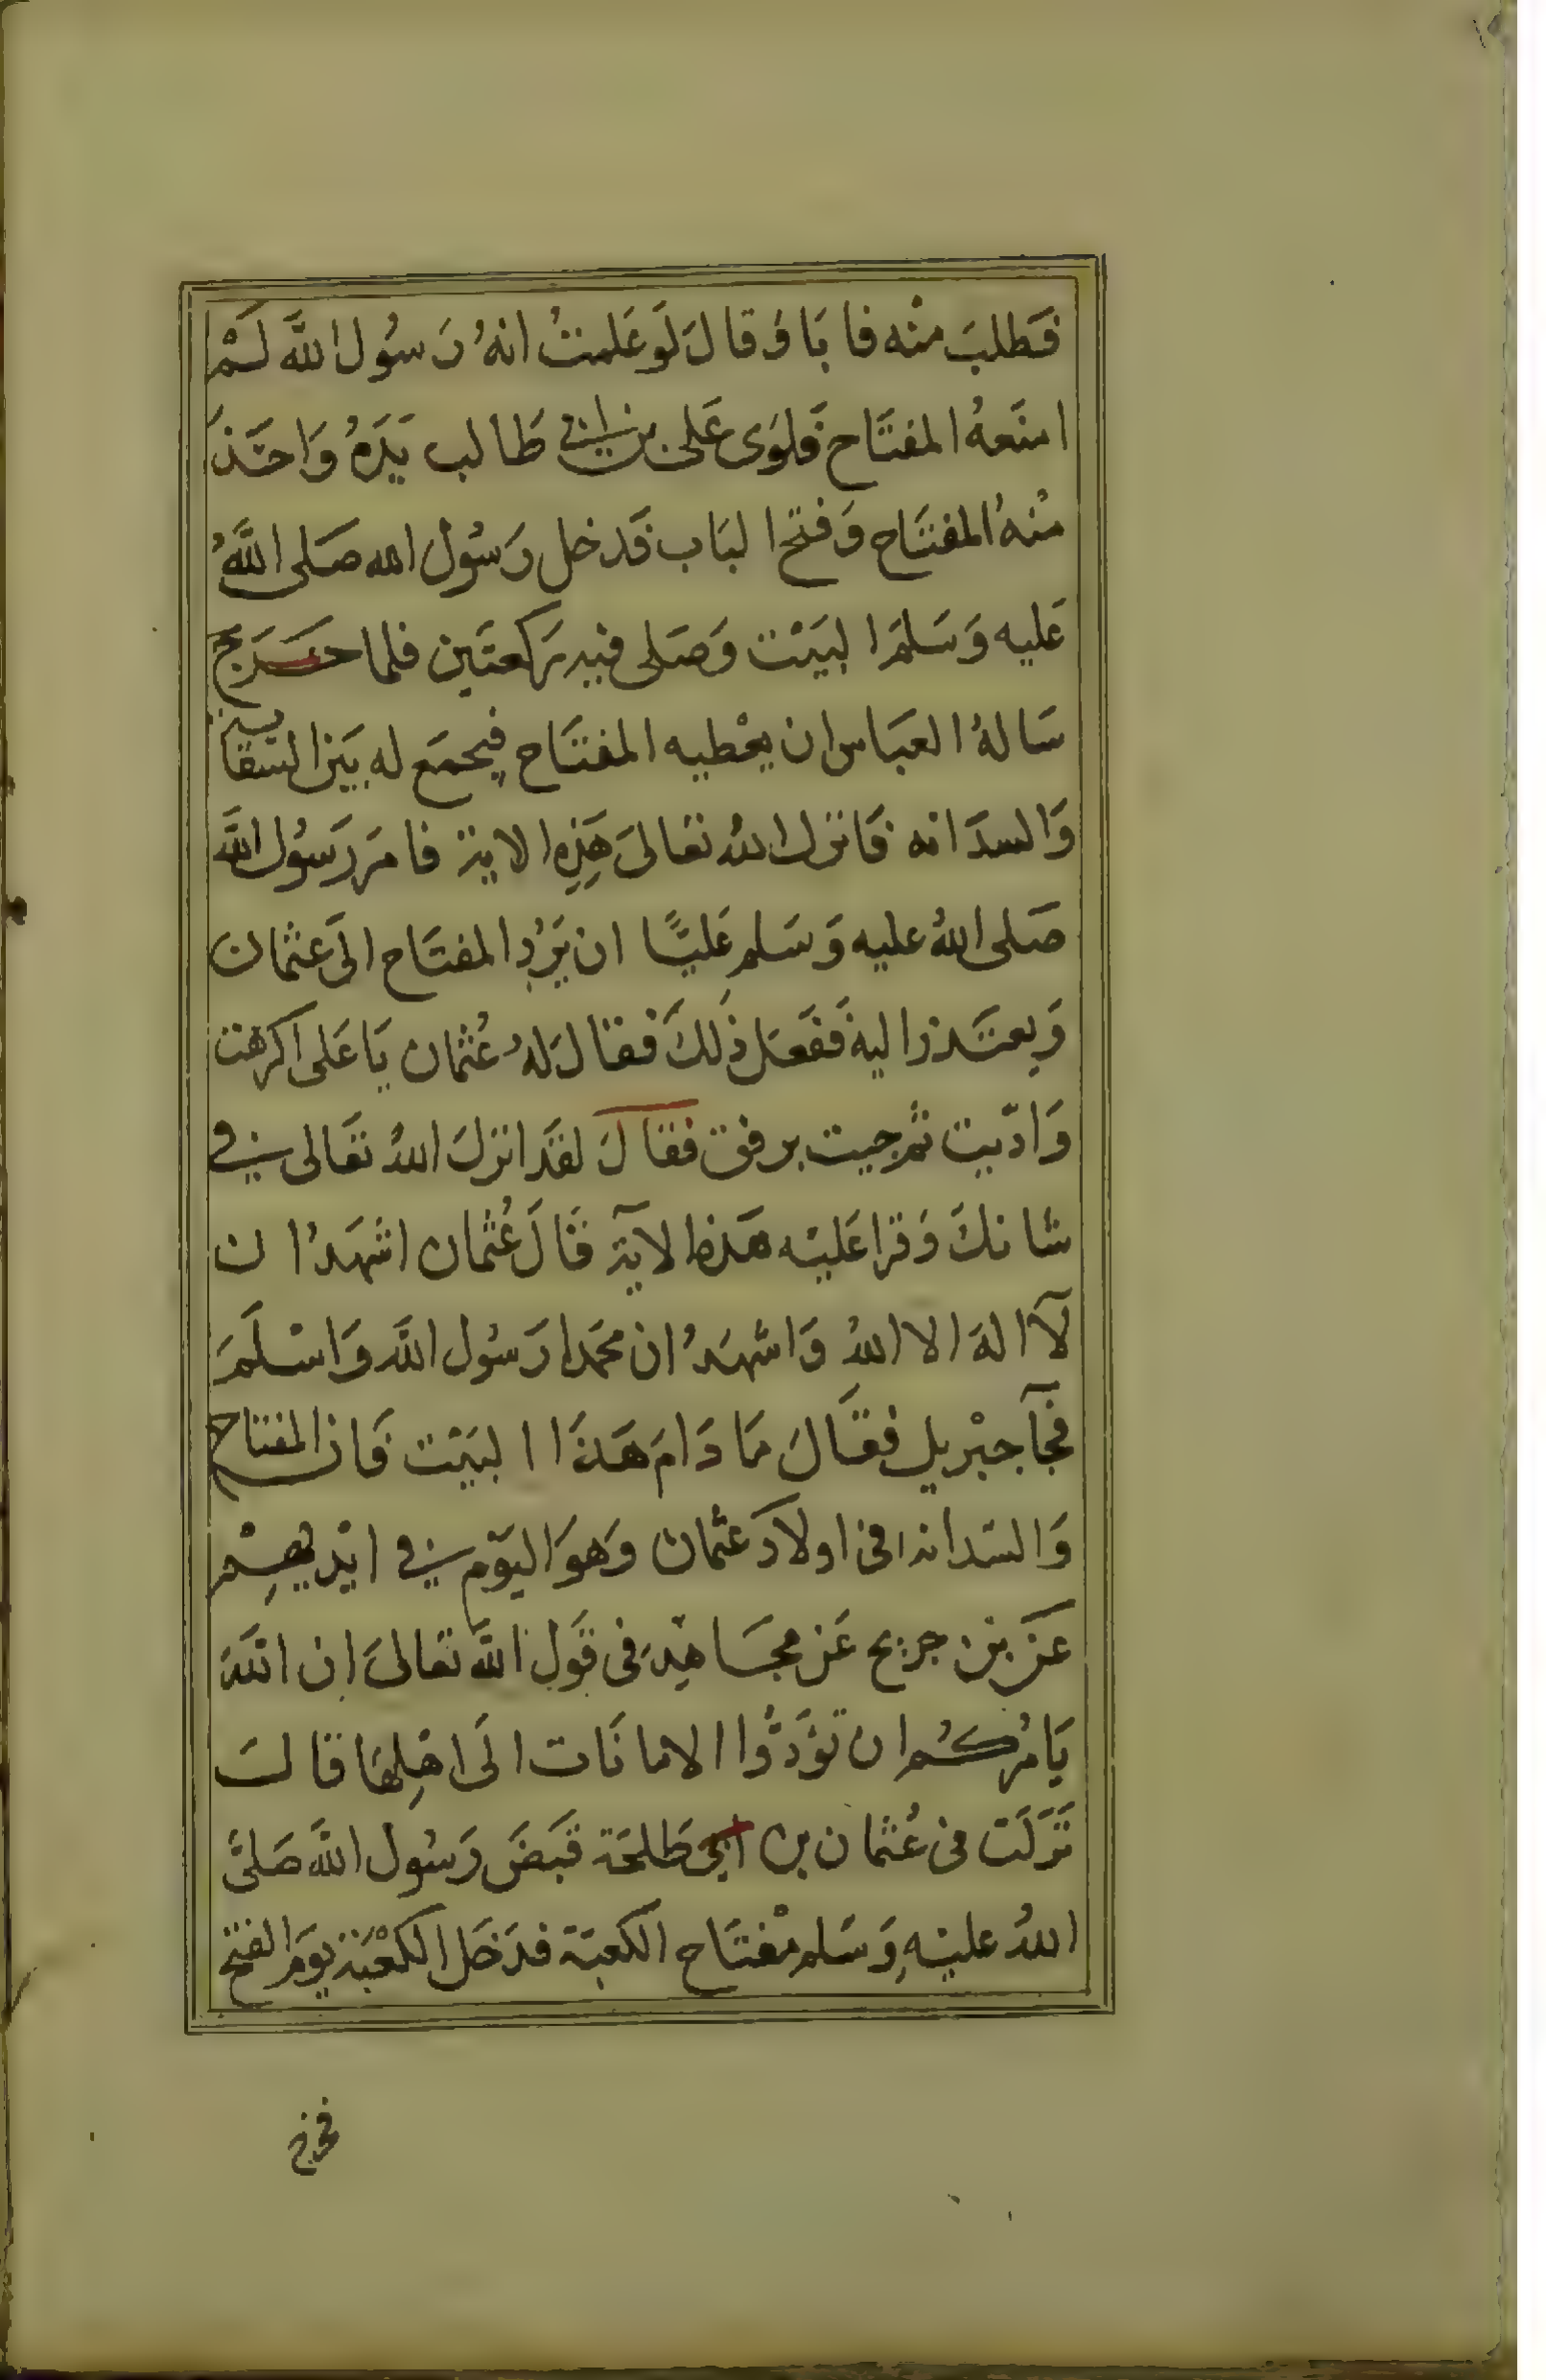 فَطلبَ منْه فابَا وَقالَ لَو عَلمتُ انهُ رَسُول اللَّه لَمْ
امنَعهُ المفتَاح فَلوَى عَلى بن ابى طَالب يَدَهُ وَاخَذَ
منْهُ المفتَاح وَفتح البَاب فَدخل رَسُول الله صَلى اللَّهُ
عَليه وَسَلمَ البَيْت وَصَلى فيه رَكعتَين فلما خَرَج
سَالهُ العبَاس ان يعْطيه المفتَاح فيجمَع له بَين السقاية
وَالسدَانه فَانزل اللهُ تعَالىَ هَذِهِ الاية فامَر رَسُول اللَّه
صَلى اللهُ عليه وَسَلم عَليًّا ان يَرُد المفتَاح الىَ عثمان
وَيعتَذر اليهْ فَفَعَل ذَلكَ فقالَ لهُ عُثمان يَا عَلى اكرهت
وَاذّيت ثم جيت برفق فقالَ لقَد انزلَ اللهُ تعَالى فى
شانكَ وَقرا عَليْه هَذه الاَية فَالَ عُثمان اشهَدُ ان
لاَ الهَ الا اللهُ وَاشهَدُ ان محَمدا رَسُول اللَّه وَاسْلَمَ
فجآ جبْريل فقَالَ مَا دَامَ هَذَا البَيْت فَان المفتاح
وَالسَدانه فى اولاَد عثمان وَهوَ اليَوْم فى ايْديهِمْ
عَن بن جريج عَن مجَاهِد فى قَول اللَّه تعَالىَ ان اللَّهَ
يَامُركُم ان تؤَدُّوا الامانَات الَى اهْلِهَا قالَ
نَزَلَت فى عُثمان بن ابى طَلحَة قَبَضَ رَسُول اللَّه صَلىَّ
اللهُ عليْهِ وَسَلم مفْتَاح الكعبَة فدَخَل الكعْبَة يَومَ الفتح
فخرج